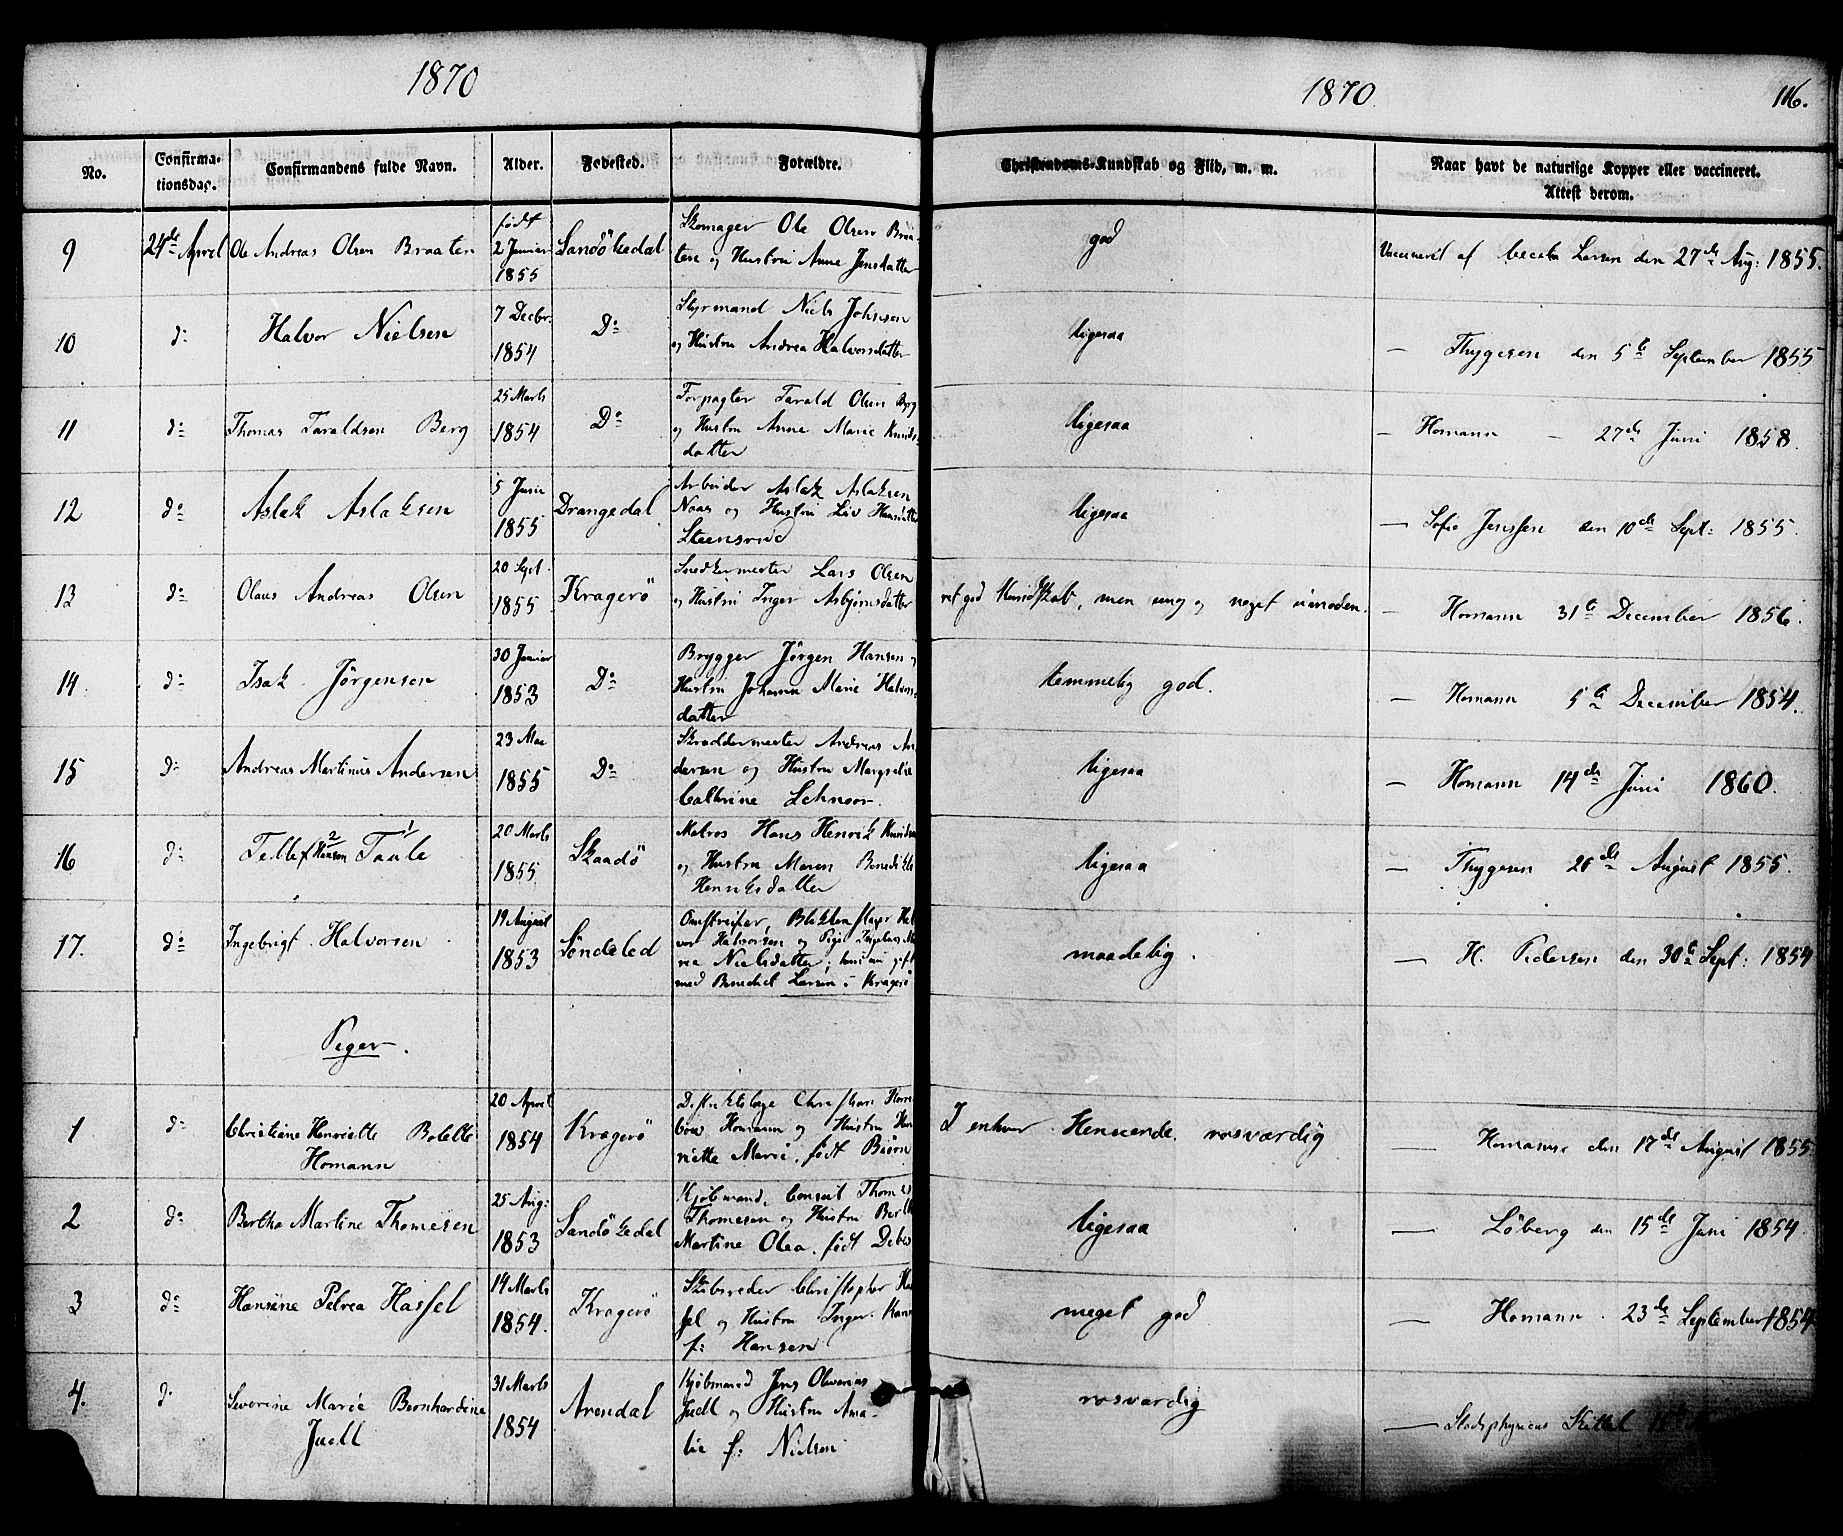 1870
1870.
116.
No.
Confirma-
tionsdag.
Confirmandens fulde Navn.
Alder.
Fødested.
Forældre.
Christendoms-Kundskab og Flid, m. m.
Naar havt de naturlige Kopper eller vaccineret.
Attest derom.
9
24de April
Ole Andreas Olsen Braaten
født
2 Januar
1855
Sandökedal
Skomager Ole Olsen Braa-
ten og Hustru Anne Jensdatter
god
Vaccineret af Larsen den 27de Aug: 1855.
10
do
Halvor Nielsen
7 Decbr.
1854
Do
Styrmand Niels Johnsen
og Hustru Andrea Halvorsdatter
ligesaa
— Thygesen den 5te September 1855
11
do
Thomas Taraldsen Berg
25 Marts
1854
Do
Forpagter Tarald Olsen Berg
og Hustru Anne Marie Knuds-
datter
ligesaa
— Homann — 27de Juni 1858.
12
do
Aslak Aslaksen
5 Juni
1855
Drangedal
Arbeider Aslak Aslaksen
Naas og Hustru Liv Hansdatter
Steensrud
ligesaa
— Sofie Jenssen den 10de Sept: 1855.
13
do
Olaus Andreas Olsen
20 Sept.
1855
Kragerö
Snedkermester Lars Olsen
og Hustru Inger Asbjörnsdatter
ret god Kundskab, men ung og noget umoden.
— Homann 31te December 1856.
14.
do
Isak Jörgensen
30 Januar
1853
Do
Brygger Jörgen Hansen og
Hustru Johanne Marie Halvors-
datter
temmelig god.
— Homann 5te December 1854.
15
do
Andreas Martinus Andersen
23 Mai
1855
Do
Skræddermester Andreas An
dersen og Hustru Margrethe
Cathrine Schnoor.
ligesaa
— Homann 14de Juni 1860.
16
do
2 1
Tellef Hansen Taule
20 Marts
1855
Skaadö
Matros Hans Henrik Knudsen
og Hustru Maren Benedikte
Henriksdatter
ligesaa
— Thygesen 26de August 1855.
17.
do
Ingebrigt Halvorsen
19 August
1853
Söndeled
Omstreifer, Blikkenslager Hal
vor Halvorsen og Pige Ingeborg Ma
rie Nielsdatter, hun nu gift
med Benedict Larsen i Kragerö
maadelig.
— H. Pedersen den 30te Sept: 1854
Piger.
1
do
Christiane Henriette Bolette
Homann
20 April
1854
Kragerö
Distriktslæge Christian Horre
bow Homann og Hustru Hen
riette Marie, født Biörn
I enhver Henseende rosværdig
— Homann den 17de August 1855
2
do
Berthe Martine Thomesen
25 Aug:
1853
Sandökedal
Kjöbmand, Consul Thomes
Thomesen og Hustru Berthe
Martine Olea, født Debes
ligesaa
— Löberg den 15de Juni 1854.
3
do
Hansine Petrea Hassel
14 Marts
1854.
Kragerö
Skibsreder Christopher Has
sel og Hustru Inger Karo
f: Hansen
meget god
— Homann 23de September 1854
4.
do
Severine Marie Bernhardine
Juell
31 Marts
1854
Arendal
Kjöbmand Jens Olivarius
Juell og Hustru Ama-
lie f: Nielsen
rosværdig
— Stadsphysicus Kittel